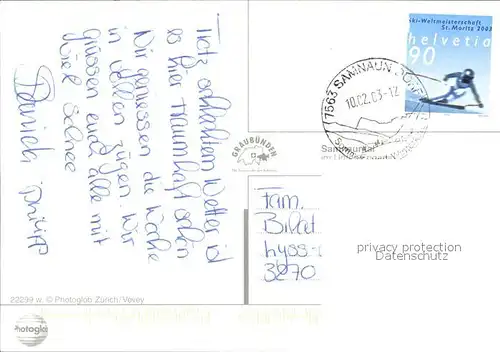 Trotz schlechtem Wetter ist
es hier traumhaft schön
Wir geniessen die Woche
in vollen Zügen. Wir
grüssen euch alle mit
viel Schnee
Daniela Philipp
Ski-Weltmeisterschaft
St. Moritz 2003
helvetia
90
7563 SAMNAUN DORF
10.02.03-12
GRAUBÜNDEN
Fam.
Lyss-
3270
privacy protection
Datenschutz
22299 w. © Photoglob Zürich/Vevey
Photoglob